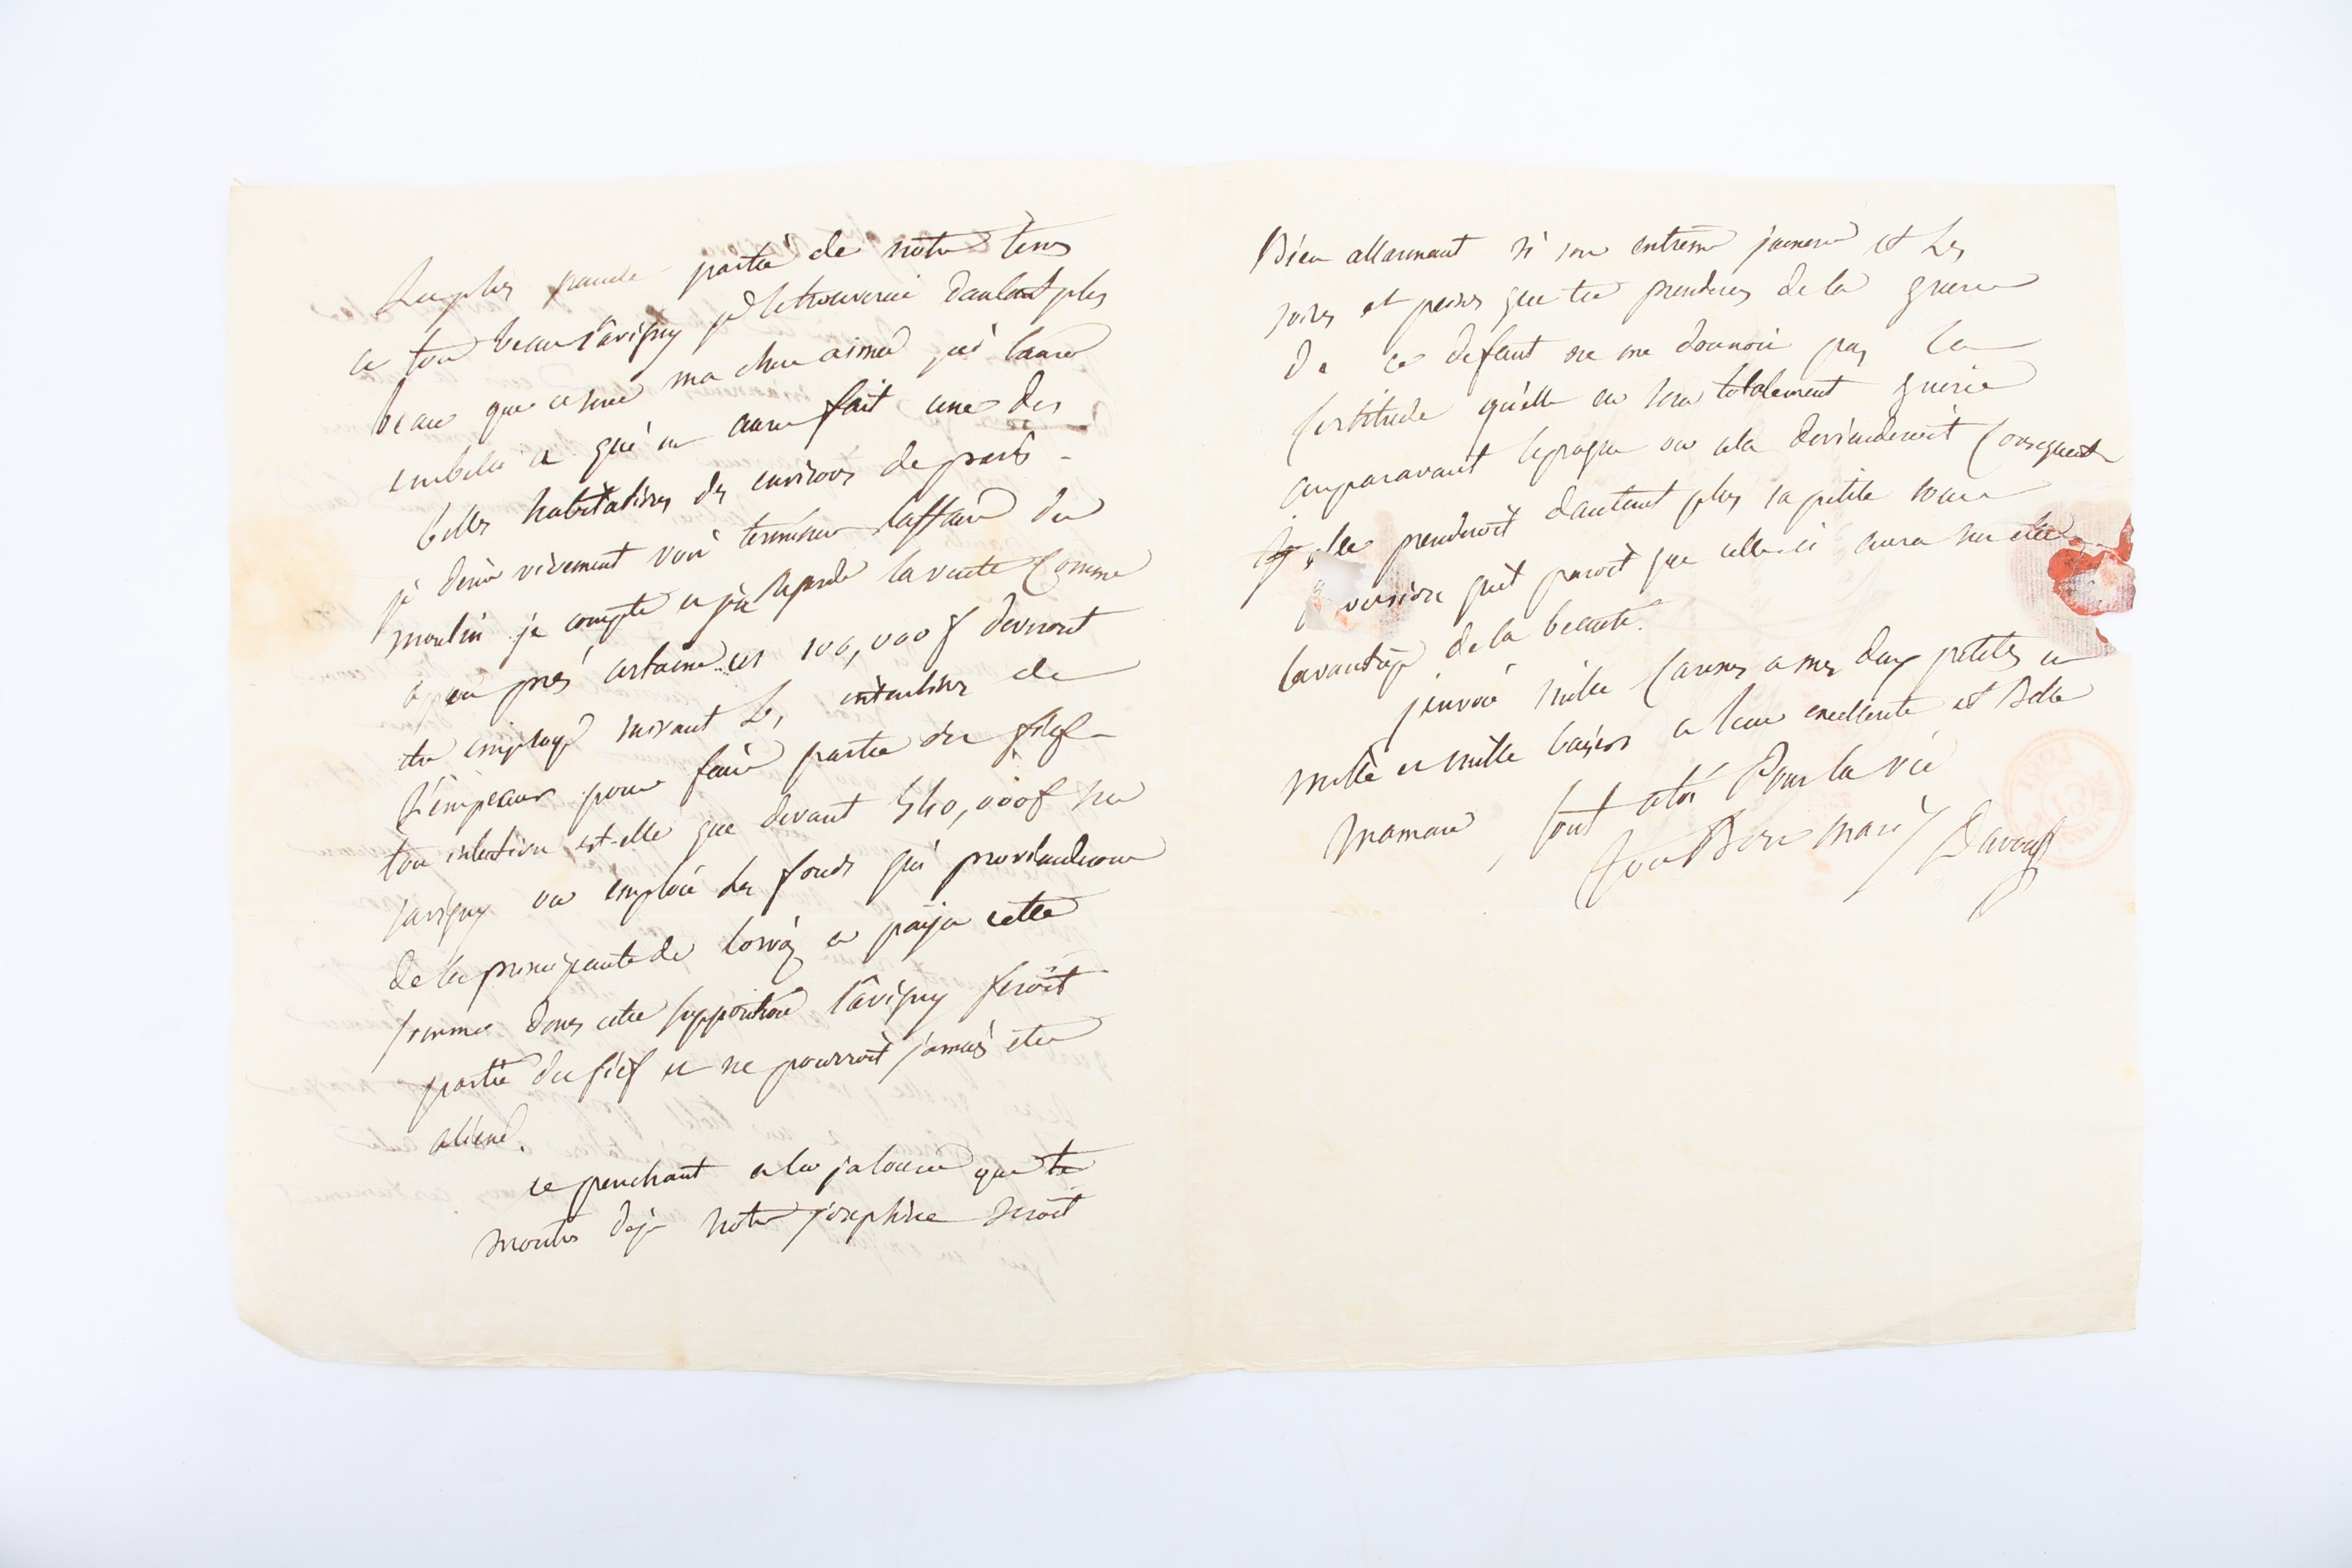 La plus grande partie de notre tems
a ton beau Savigny je le trouverai d'autant plus
beau que c'est ma chere aimée qui l'aura
embelli et qui en aura fait une des
belles habitations des environs de paris -
je desire vivement voir terminer l'affaire du
moulin je compte en regarde la vente comme
a peu près certaine ces 100,000 f devront
etre employé suivant les intentions de
L'empereur pour faire partie du fief -
ton intention est-elle que devant 540,000 f sur
savigny on emploie les fonds qui proviendront
de la principauté de Lowiz a payer cette
somme dans cette supposition Savigny seroit
partie du fief et ne pourroit jamais etre
aliené.
ce penchant a la jalousie que te
montre deja notre josephine seroit
Bien allarmant si son extreme jeunesse et les
soins et peines que tu prenderas de la guerir
de ce defaut ne me donnoit pas la
certitude qu'elle en sera totalement guerie
auparavant l'epoque ou cela deviendroit consequent
elle prenderoit d'autant plus sa petite soeur
version qu'il paroit que celle-ci aura sur elle
l'avantage de la beauté.
j'envoie mille caresses a mes deux petites et
mille et mille baisers a leur excellente et Belle
maman, tout a toi Pour la vie
ton Bon mari Davout